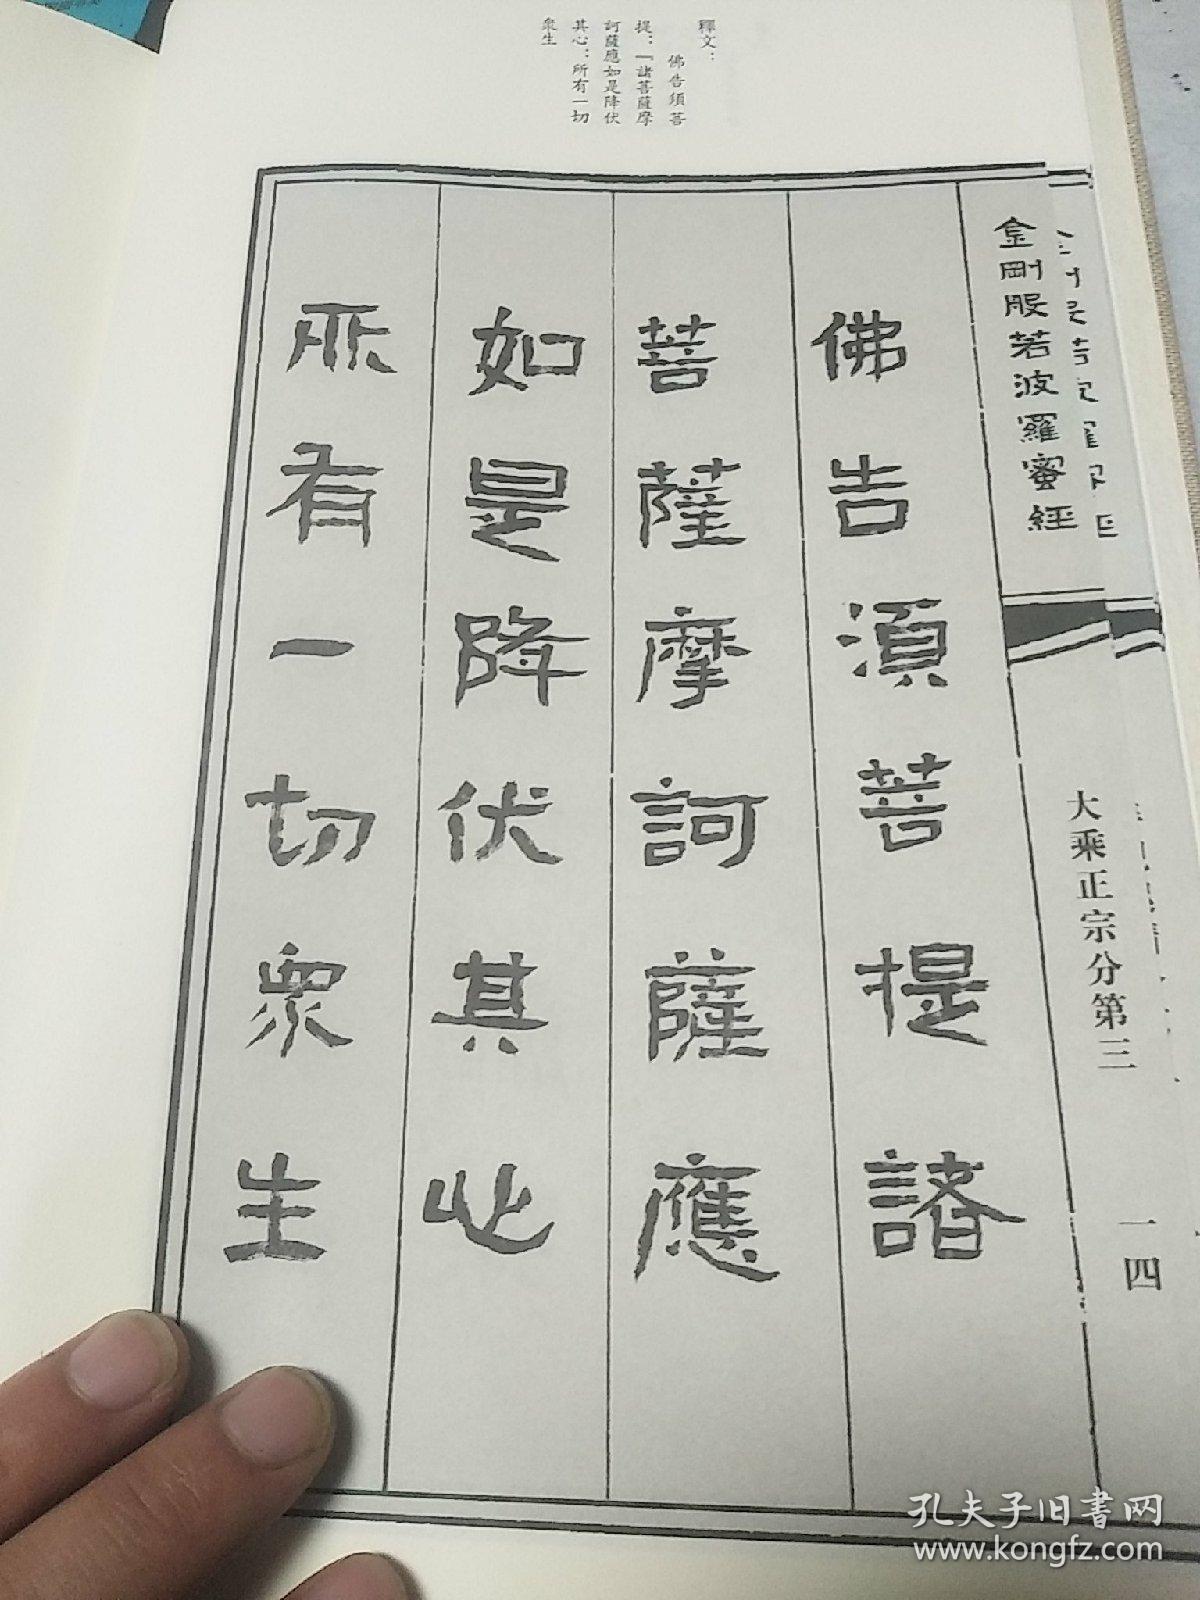 釋文：
佛告須菩
提：「諸菩薩摩
訶薩應如是降伏
其心：所有一切
衆生
金剛般若波羅蜜經
大乘正宗分第三
一四
佛告須菩提諸
菩薩摩訶薩應
如是降伏其心
所有一切衆生
孔夫子旧书网
www.kongfz.com